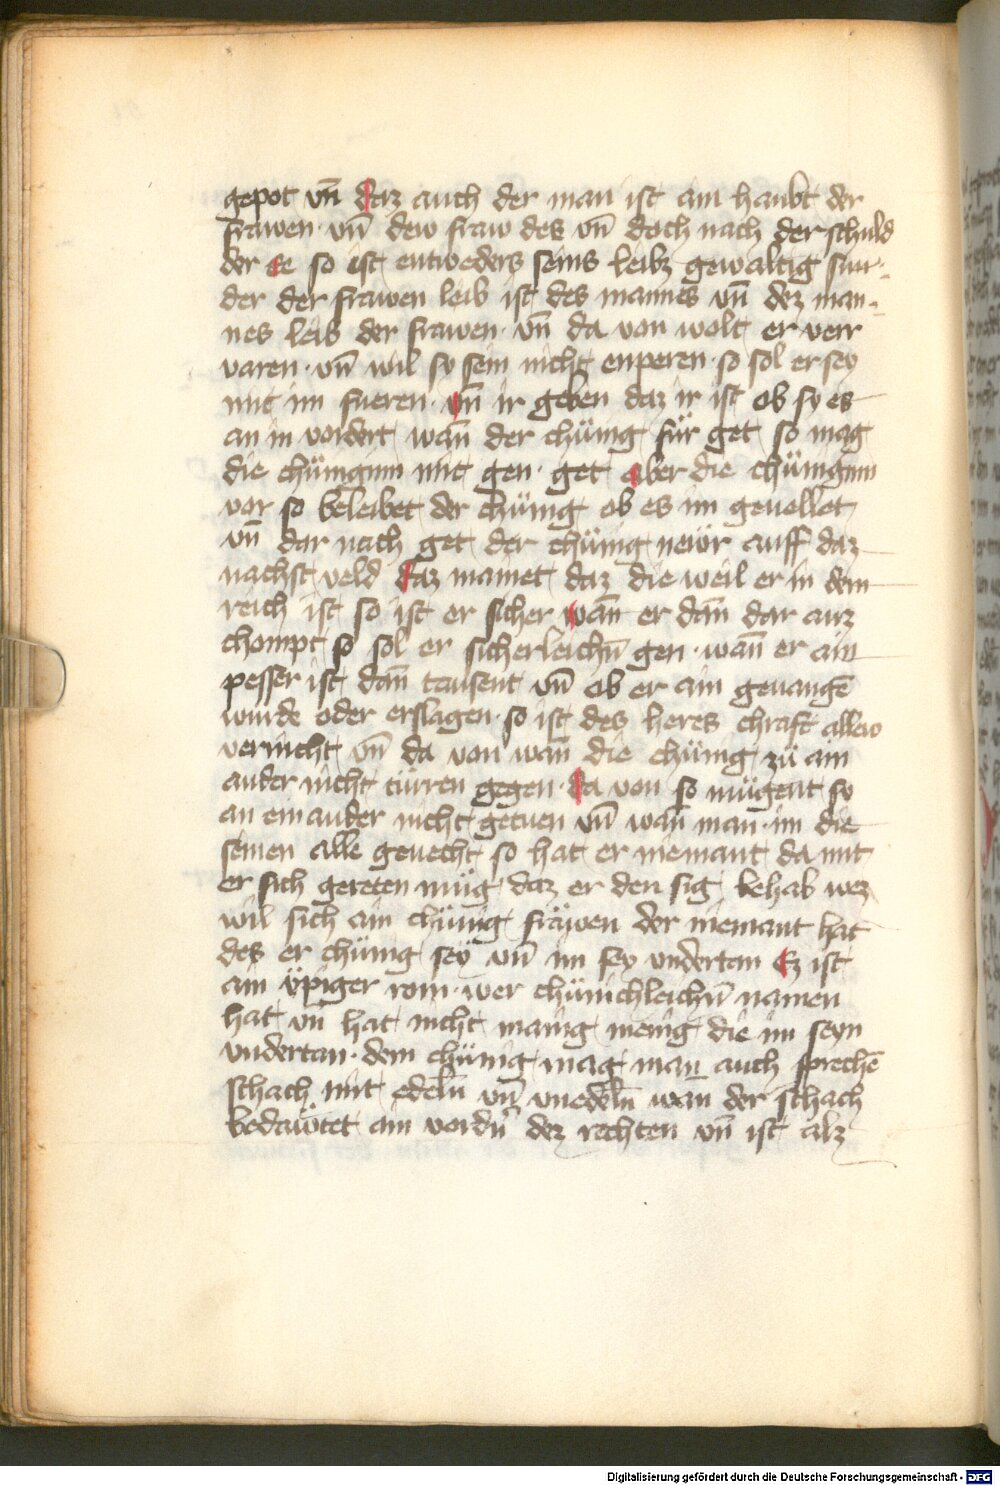 gepot vn̄ daz auch der man ist ain haubt der
frawen · vn̄ dew fraw des vn̄ doch nach der schuld
der ee so ist entweders seins leibz gewaltig sun-
der der frawen leib ist des mannes vn̄ dez man-
nes leib der frawen · vn̄ da von wolt er verr
varen · vn̄ wil sy sein nicht enperen · so sol er sey
mit im fueren · vn̄ ir geben daz ir ist ob sy es
an in vordert wan̄ der chünig für get so mag
die chüniginn mit gen · get aber die chüniginn
vor so beleibet der chünig ob es im geuellet
vn̄ dar nach get der chünig newr auff daz
nachst veld daz mainet daz die weil er in dem
reich ist so ist er sicher wan̄ er dan̄ dar auz
chompt so sol er sicherleichn̄ gen · wan̄ er ain
pesser ist dan̄ tausent vn̄ ob er ain geuangē
wurde oder erslagen · so ist des heres chraft allew
vernicht vn̄ da von wan̄ die chünig zü ain
ander nicht türren gegen · da von so mügent sy
an ein ander nicht getuen vn̄ wan̄ man im die
seinen alle geuecht so hat er niemant da mit
er sich gereten müg daz er den sig behab wez
wil sich ain chünig fräwen der niemant hat
des er chünig seÿ vn̄ im sey vndertan Ez ist
ain üpiger rom · wer chünichleichn̄ namen
hat vn̄ hat nicht manig menig die im seyn
vndertan · dem chünig mag man auch sprechē
schach mit edeln̄ vn̄ vnedeln̄ wan der schach
bedäwtet ain vordn̄ dez rechten vn̄ ist alz
Digitalisierung gefördert durch die Deutsche Forschungsgemeinschaft - DFG